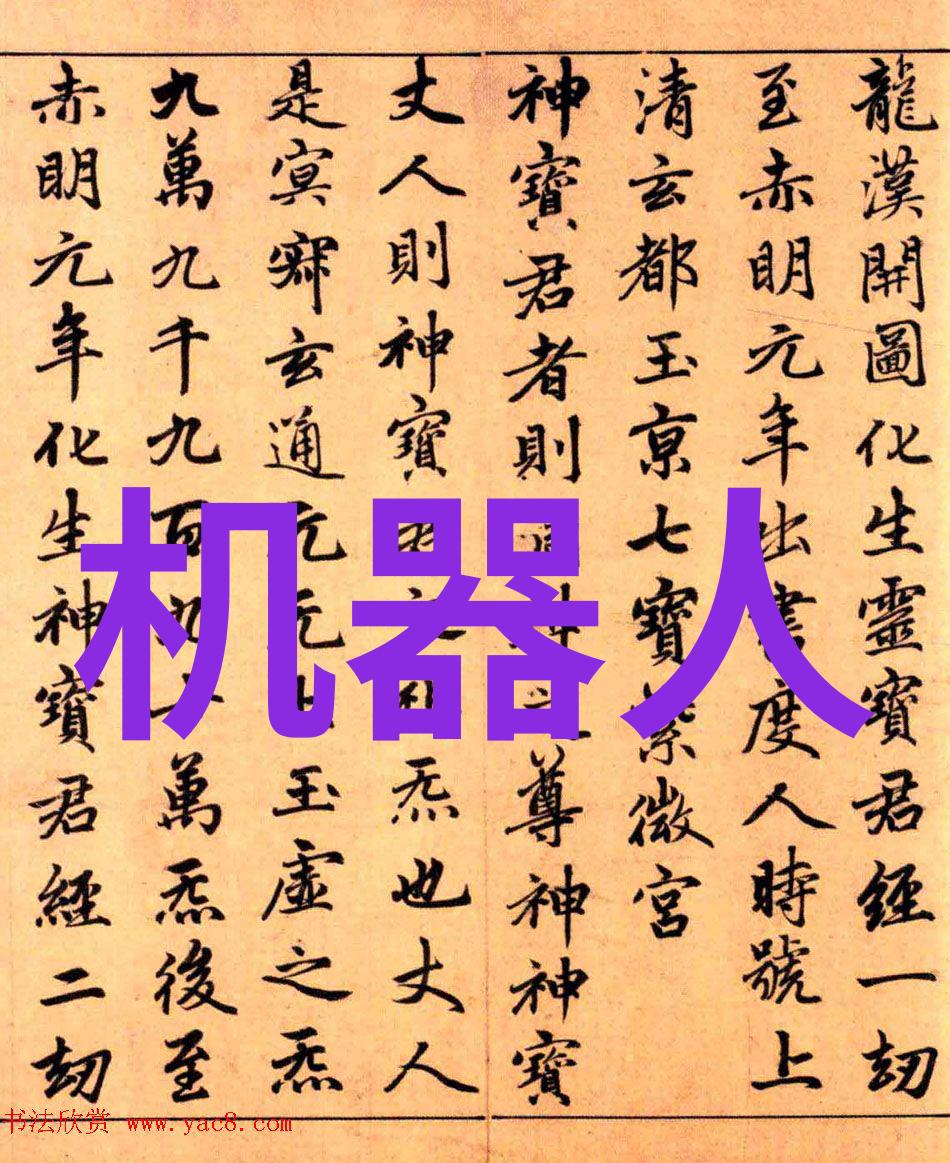 龍漢開圖化生靈寶君經一劫
至赤明元年出書度人時號上
清玄都玉京七寶紫微宮
神寶君者則尊神神寶
丈人則神寶炁也丈人
是冥寂玄通无无上玉虛之炁
九萬九千九百九十萬炁後至
赤明元年化生神寶君經二劫
机器人
书法欣赏 www.yac8.com